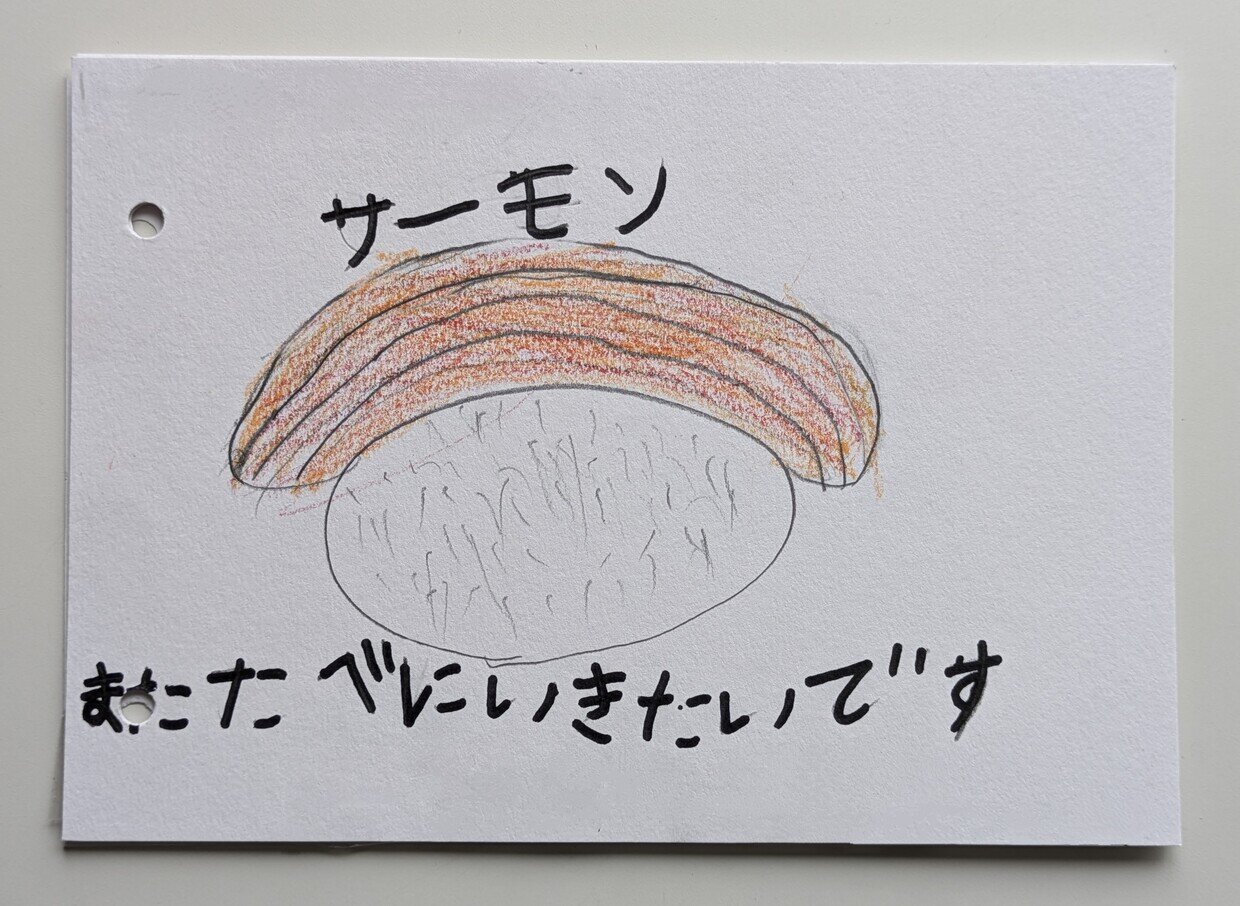 サーモン
またたべにいきたいです